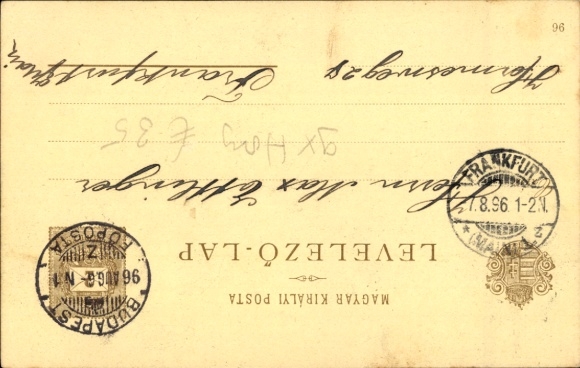 MAGYAR KIRÁLYI POSTA
LEVELEZŐ-LAP
BUDAPEST
96 AUG 6 N 1
FŐPOSTA
FRANKFURT
7.8.96. 1-2N.
(MAIN) 1
Herrn Max Ettlinger
9x Hong
€ 35
Hermesweg 28
Frankfurt a/Main
96